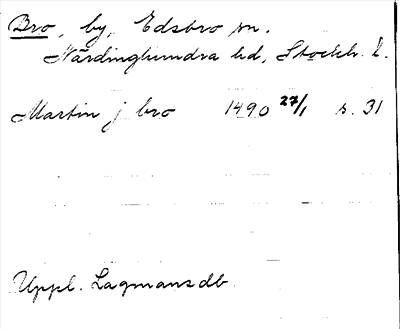 Bro, by, Edsbro sn.
Närdinghundra hd, Stockh. l.
Martin j bro 1490 27/1 s. 31
Uppl. Lagmansdb.